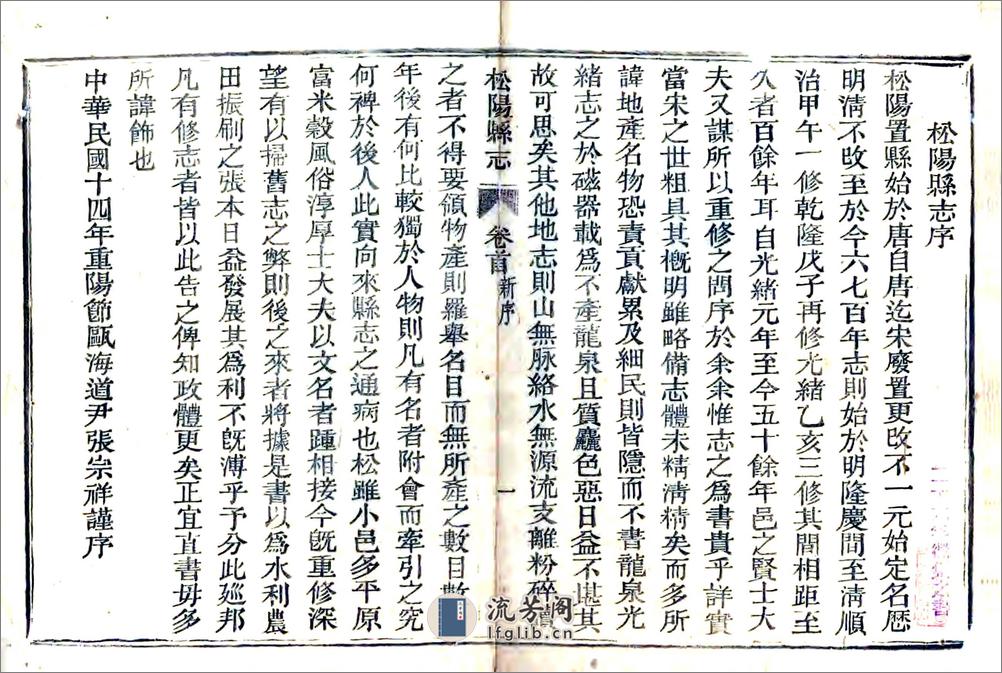 松陽縣志序
松陽置縣始於唐自唐迄宋廢置更改不一元始定名歷
明清不改至於今六七百年志則始於明隆慶間至清順
治甲午一修乾隆戊子再修光緒乙亥三修其間相距至
久者百餘年耳自光緒元年至今五十餘年邑之賢士大
夫又謀所以重修之問序於余余惟志之爲書貴乎詳實
當宋之世粗具其概明雖略備志體未精清精矣而多所
諱地產名物恐責貢獻累及細民則皆隱而不書龍泉光
緒志之於磁器載爲不產龍泉且質麤色惡日益不堪其
故可思矣其他地志則山無脉絡水無源流支離粉碎讀
松陽縣志
卷首
新序
一
之者不得要領物產則羅舉名目而無所產之數目數
年後有何比較獨於人物則凡有名者附會而牽引之究
何裨於後人此實向來縣志之通病也松雖小邑多平原
富米穀風俗淳厚士大夫以文名者踵相接今旣重修深
望有以掃舊志之弊則後之來者將據是書以爲水利農
田振刷之張本日益發展其爲利不旣溥乎予分此廵邦
凡有修志者皆以此告之俾知政體更矣正宜直書毋多
所諱飾也
中華民國十四年重陽節甌海道尹張宗祥謹序
流芳阁
lfglib.cn